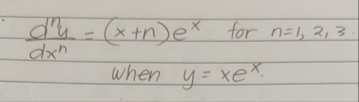 dⁿy/dxⁿ = (x+n)eˣ for n=1, 2, 3.
when y = xeˣ.